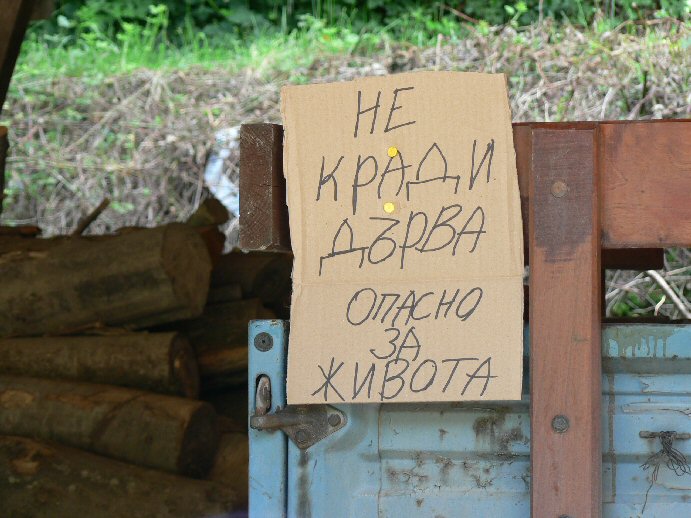 НЕ
КРАДИ
ДЪРВА
ОПАСНО
ЗА
ЖИВОТА